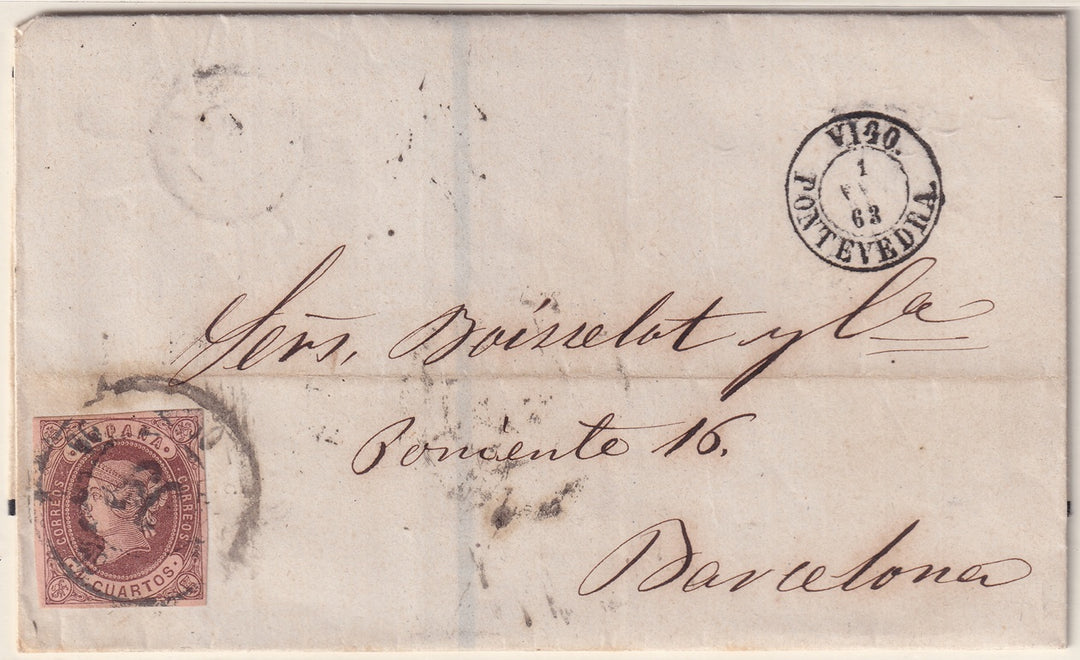 VIGO.
1
63
PONTEVEDRA
Señs, Boisselot y Ca
Poniente 16.
Barcelona
ESPAÑA
CORREOS
CORREOS
CUARTOS